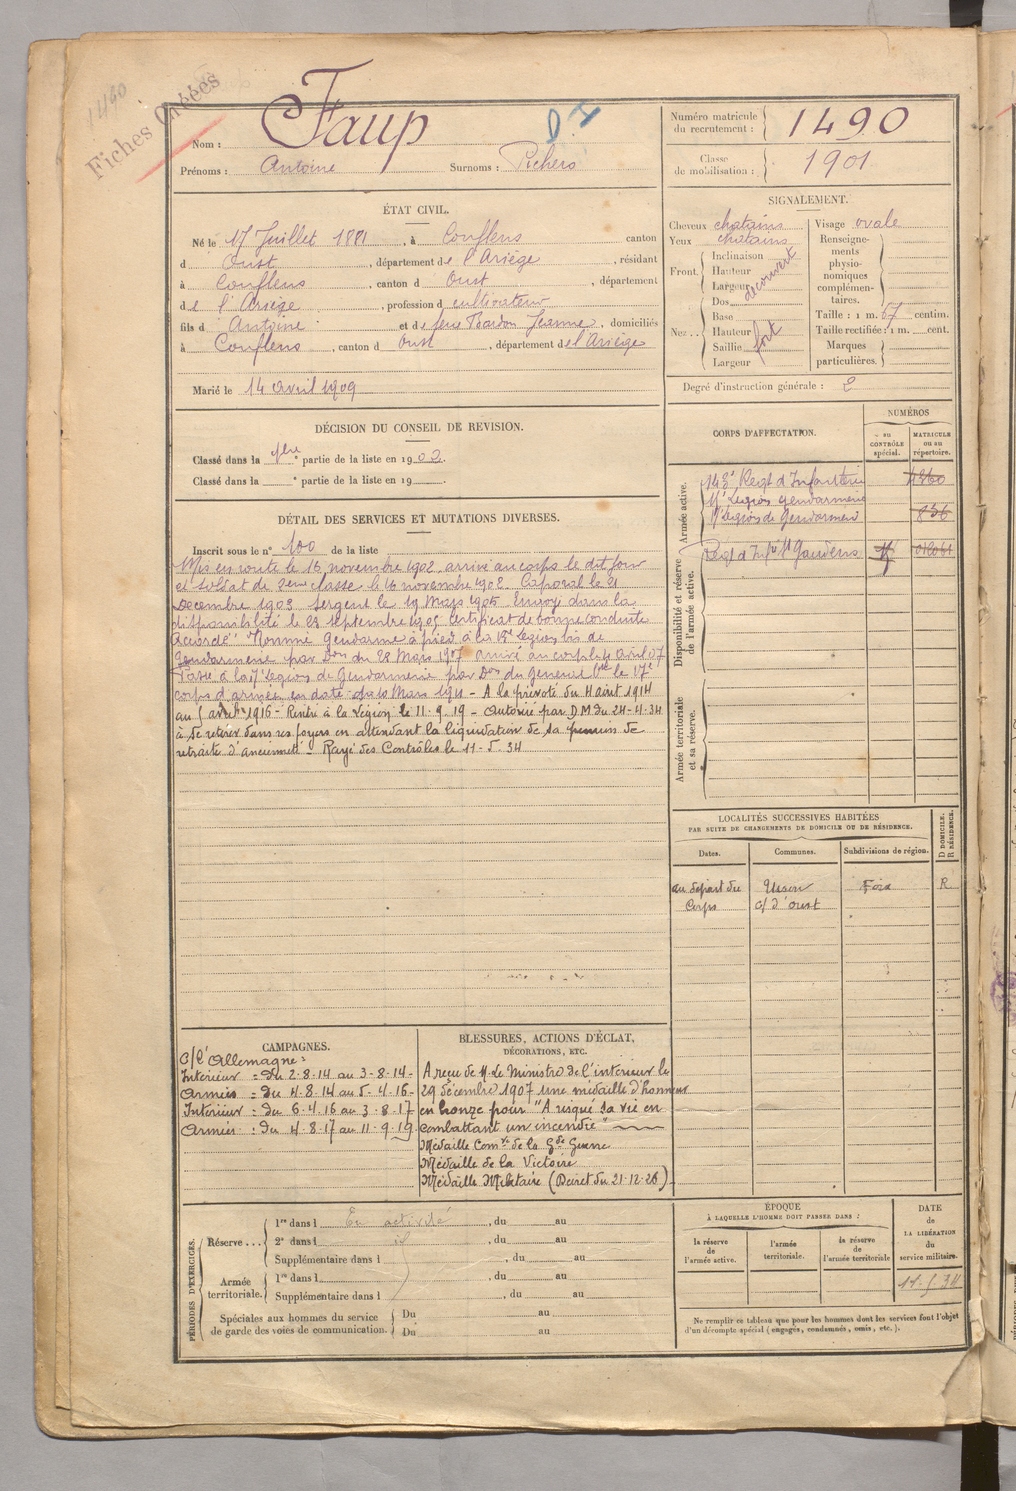 1460
Fiches Créées
Nom : Faup
Prénoms : Antoine Surnoms : Pichers
Numéro matricule du recrutement : 1490
Classe de mobilisation : 1901
ÉTAT CIVIL.
Né le 17 Juillet 1881, à Couflens canton
d Oust, département de l'Ariège, résidant
à Couflens, canton d Oust, département
de l'Ariège, profession d cultivateur
fils d Antoine et de feue Bardon Jeanne, domiciliés
à Couflens, canton d Oust, département de l'Ariège
Marié le 14 avril 1909
SIGNALEMENT.
Cheveux chatains
Yeux chatains
Front. Inclinaison
Hauteur
Largeur
découvert
Nez.. Dos
Base
Hauteur
Saillie
Largeur
fort
Visage ovale
Renseignements physionomiques complémentaires.
Taille : 1 m. 67 centim.
Taille rectifiée : 1 m. cent.
Marques particulières.
Degré d'instruction générale : 2
DÉCISION DU CONSEIL DE REVISION.
Classé dans la 1ère partie de la liste en 1902.
Classé dans la e partie de la liste en 19
DÉTAIL DES SERVICES ET MUTATIONS DIVERSES.
Inscrit sous le n° 100 de la liste
Mis en route le 16 novembre 1902 arrivé au corps le dit jour
et soldat de 2eme classe le 16 novembre 1902. Caporal le 21
Décembre 1903 Sergent le 19 Mars 1905 Envoyé dans la
disponibilité le 23 septembre 1905 Certificat de bonne conduite
accordé. Nommé Gendarme à pied à la Légion bis de
Gendarmerie par Don du 28 Mars 1907 arrivé au corps le 4 avril 07
Passé à la 17e Légion de Gendarmerie par Don du Général Ct le 17e
corps d'armée en date du 10 Mars 1911 - A la prévoté du 4 août 1914
au 5 avril 1916 - Rentré à la Légion le 11.9.19 - Autorisé par D.M du 24-4-34
à se retirer dans ses foyers en attendant la liquidation de sa pension de
retraite d'ancienneté - Rayé des Contrôles le 11.5.34
CORPS D'AFFECTATION.
NUMÉROS
au CONTRÔLE spécial.
MATRICULE ou au répertoire.
Armée active.
143e Regt d'Infanterie
17e Légion gendarmerie
17e Légion de Gendarmerie 836
Disponibilité et réserve de l'armée active.
Regt d'Infie St Gaudens
Armée territoriale et sa réserve.
LOCALITÉS SUCCESSIVES HABITÉES
PAR SUITE DE CHANGEMENTS DE DOMICILE OU DE RÉSIDENCE.
Dates. Communes. Subdivisions de région. D DOMICILE. R RÉSIDENCE.
au départ du Corps
c/ d'Oust
Foix
R
CAMPAGNES.
c/ l'Allemagne :
Intérieur = du 2.8.14 au 3-8-14-
Armées = du 4.8.14 au 5-4-16-
Intérieur = du 6.4.16 au 3.8.17
Armées : du 4.8.17 au 11.9.19
BLESSURES, ACTIONS D'ÉCLAT,
DÉCORATIONS, ETC.
A reçu de M. Le Ministre de l'intérieur le
29 décembre 1907 une médaille d'honneur
en bronze pour "A risqué sa vie en
combattant un incendie"
Médaille Comve de la Gde Guerre
Médaille de la Victoire
Médaille Militaire (Décret du 21.12.26)
PÉRIODES D'EXERCICES.
Réserve... 1re dans l En activité, du au
2e dans l, du au
Supplémentaire dans l, du au
Armée territoriale. 1re dans l, du au
Supplémentaire dans l, du au
Spéciales aux hommes du service de garde des voies de communication. Du au
Du au
ÉPOQUE
À LAQUELLE L'HOMME DOIT PASSER DANS :
la réserve de l'armée active.
l'armée territoriale.
la réserve de l'armée territoriale
DATE de LA LIBÉRATION du service militaire.
11.5.34
Ne remplir ce tableau que pour les hommes dont les services font l'objet
d'un décompte spécial (engagés, condamnés, omis, etc.).